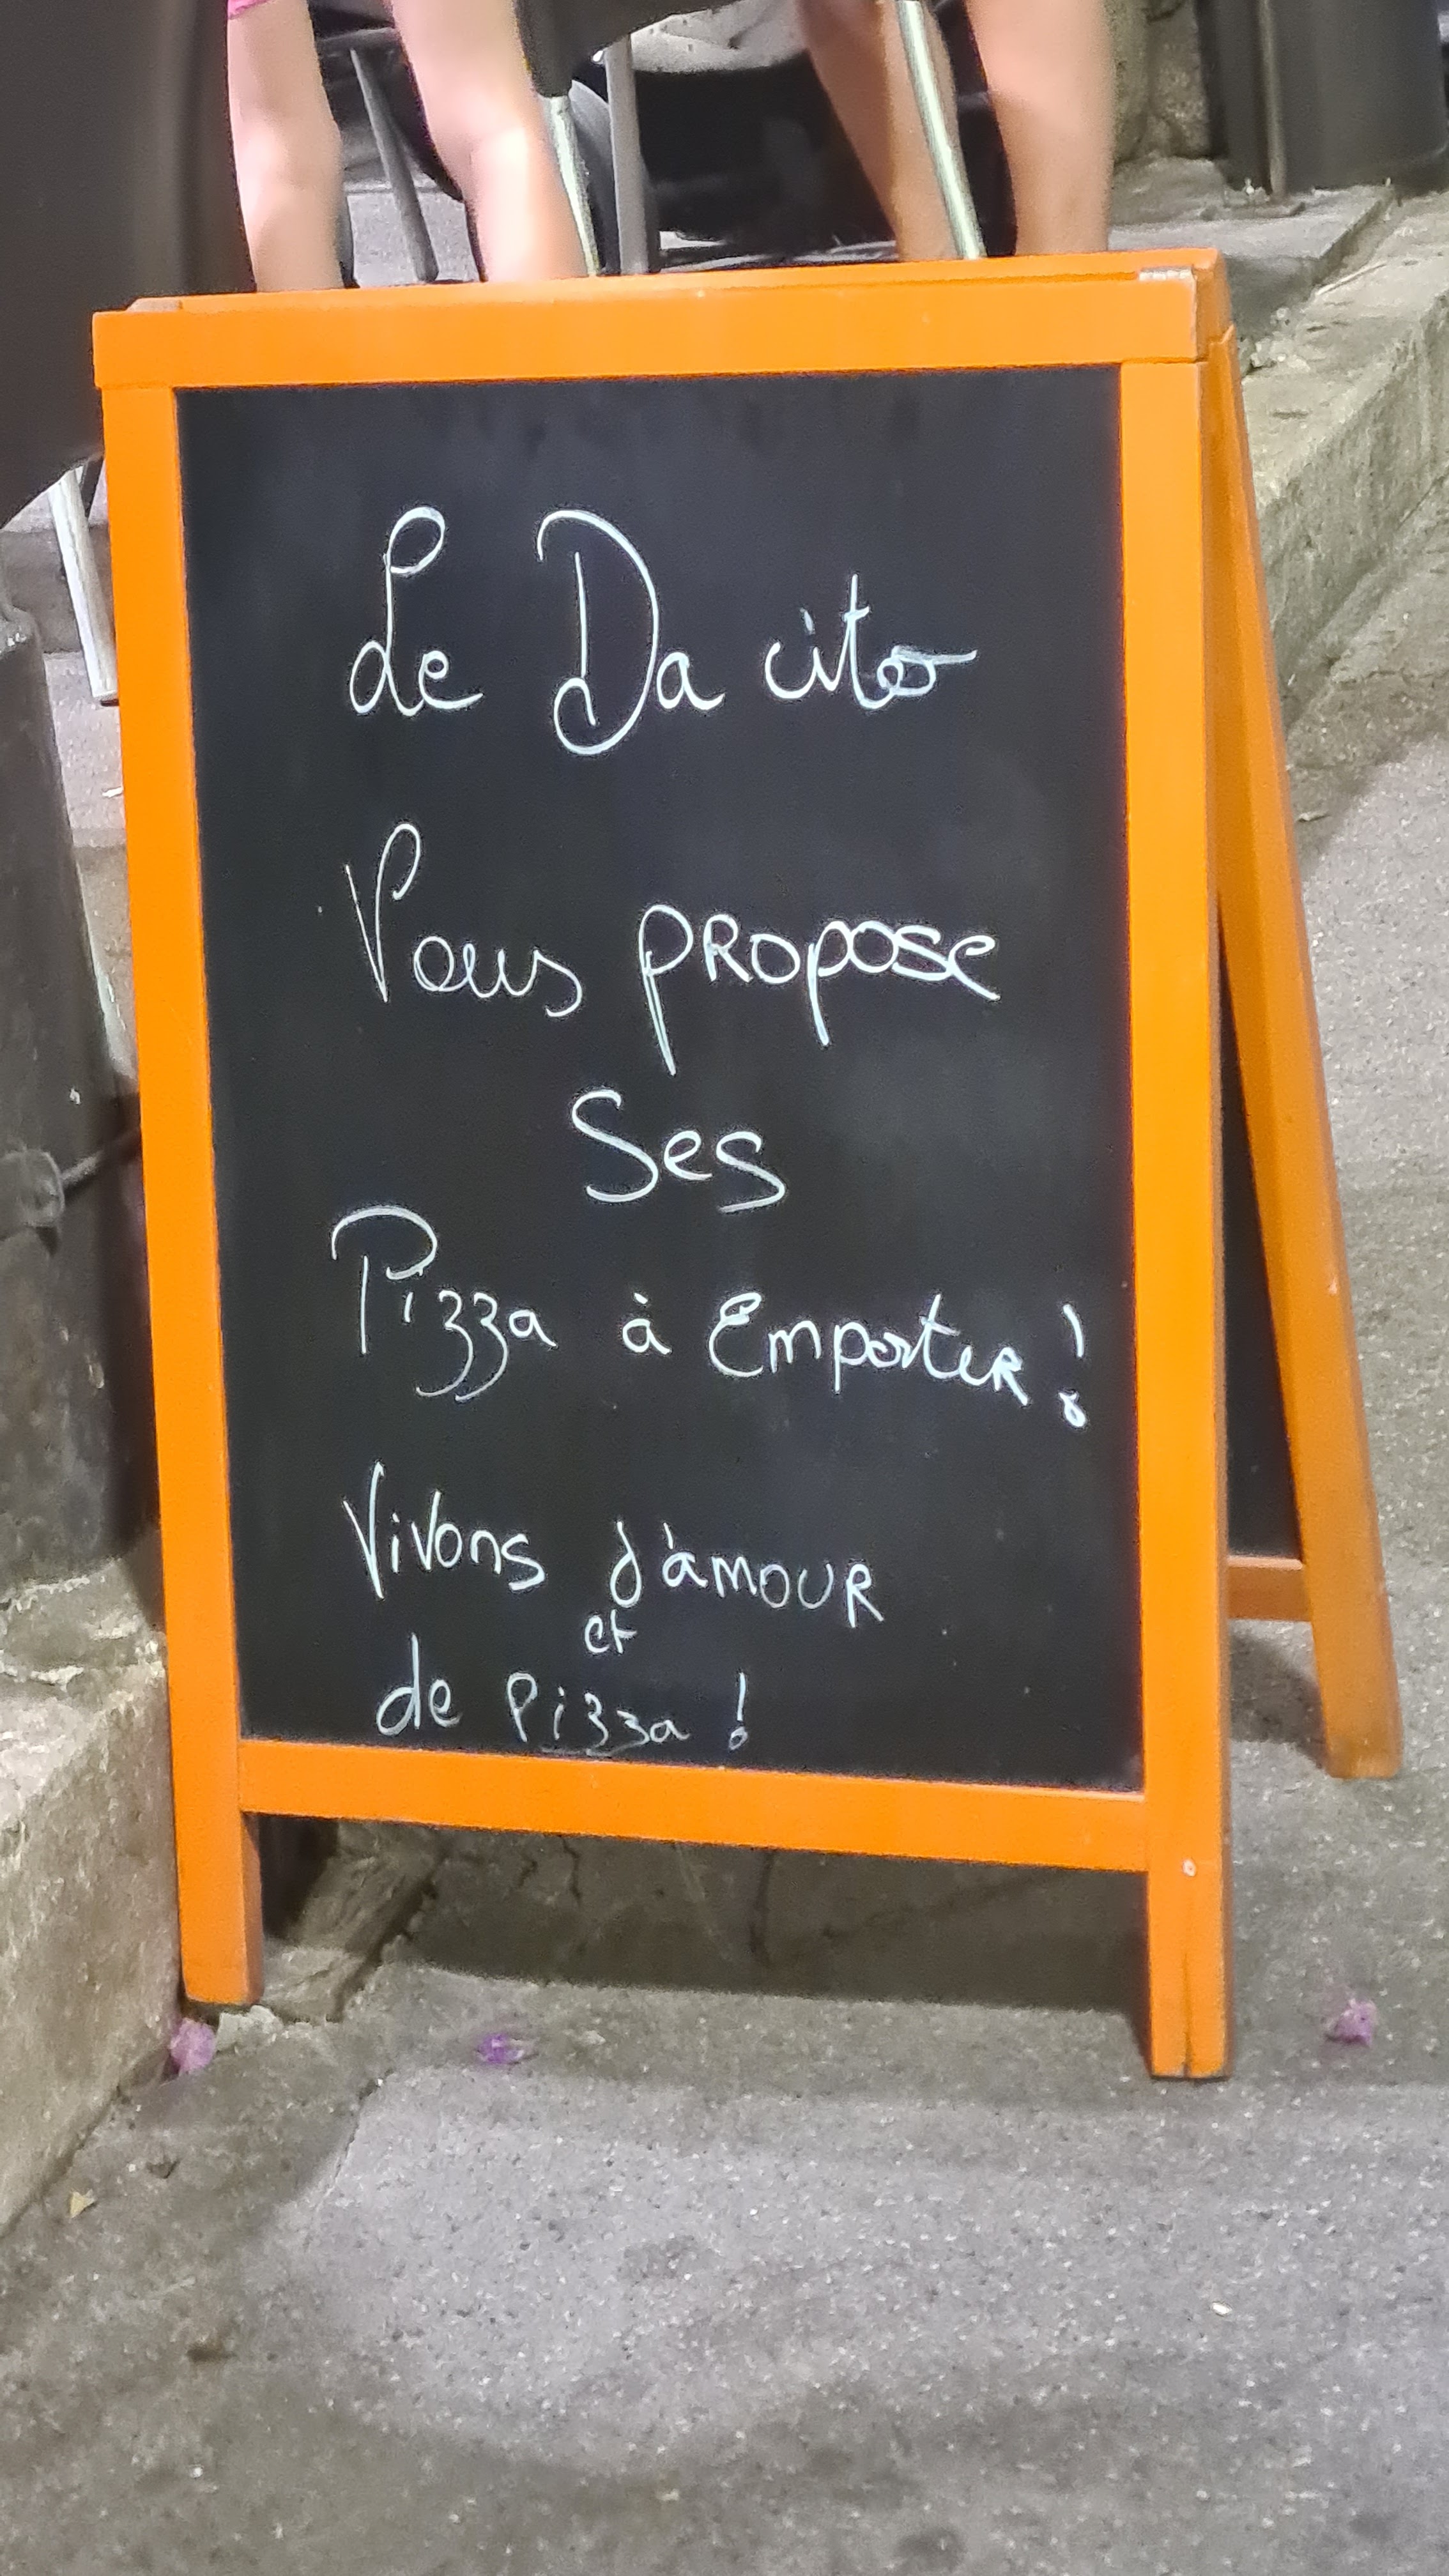 Le Da cito
Vous propose
Ses
Pizza à Emporter !
Vivons d'amour
et
de Pizza !